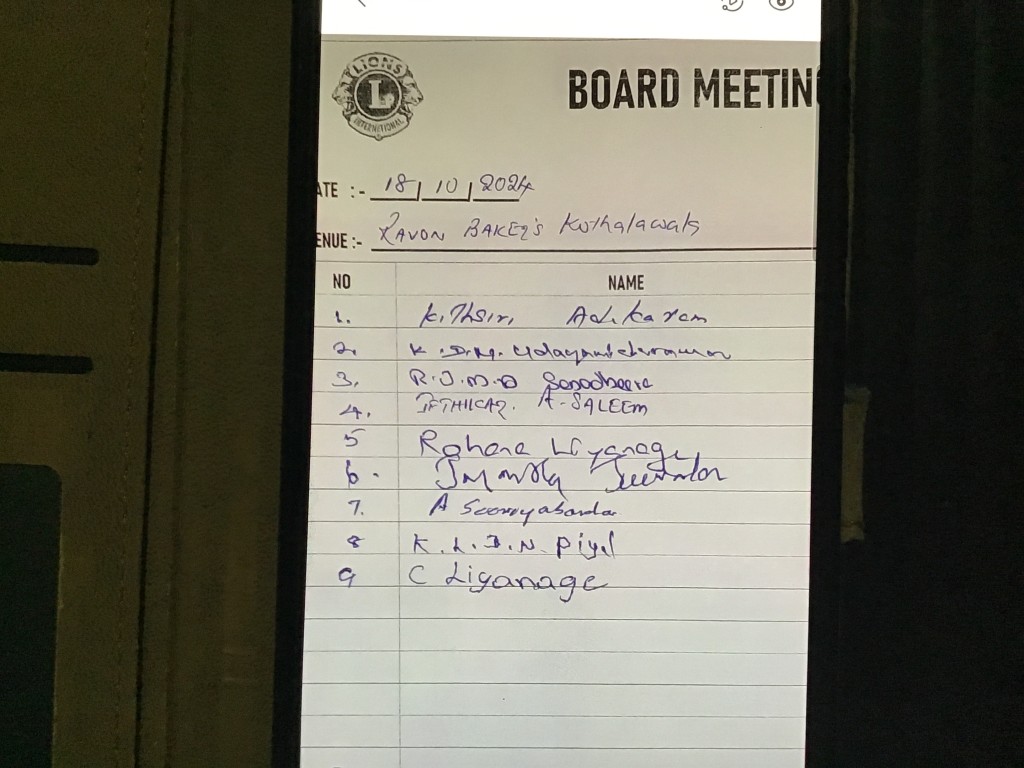 LIONS
L
INTERNATIONAL
BOARD MEETIN
ATE :- 18 | 10 | 2024
ENUE :- RAVON BAKER'S Kothalawala
NO NAME
1. Kithsiri Adikaram
2. K.D.M.
3. R.J.M.D
4. IFTHIKAR. A-SALEEM
5 Rohana Liyanage
6.
7. A Sooriyabanda
8 K.L.I.N. Piyal
9 C Liyanage